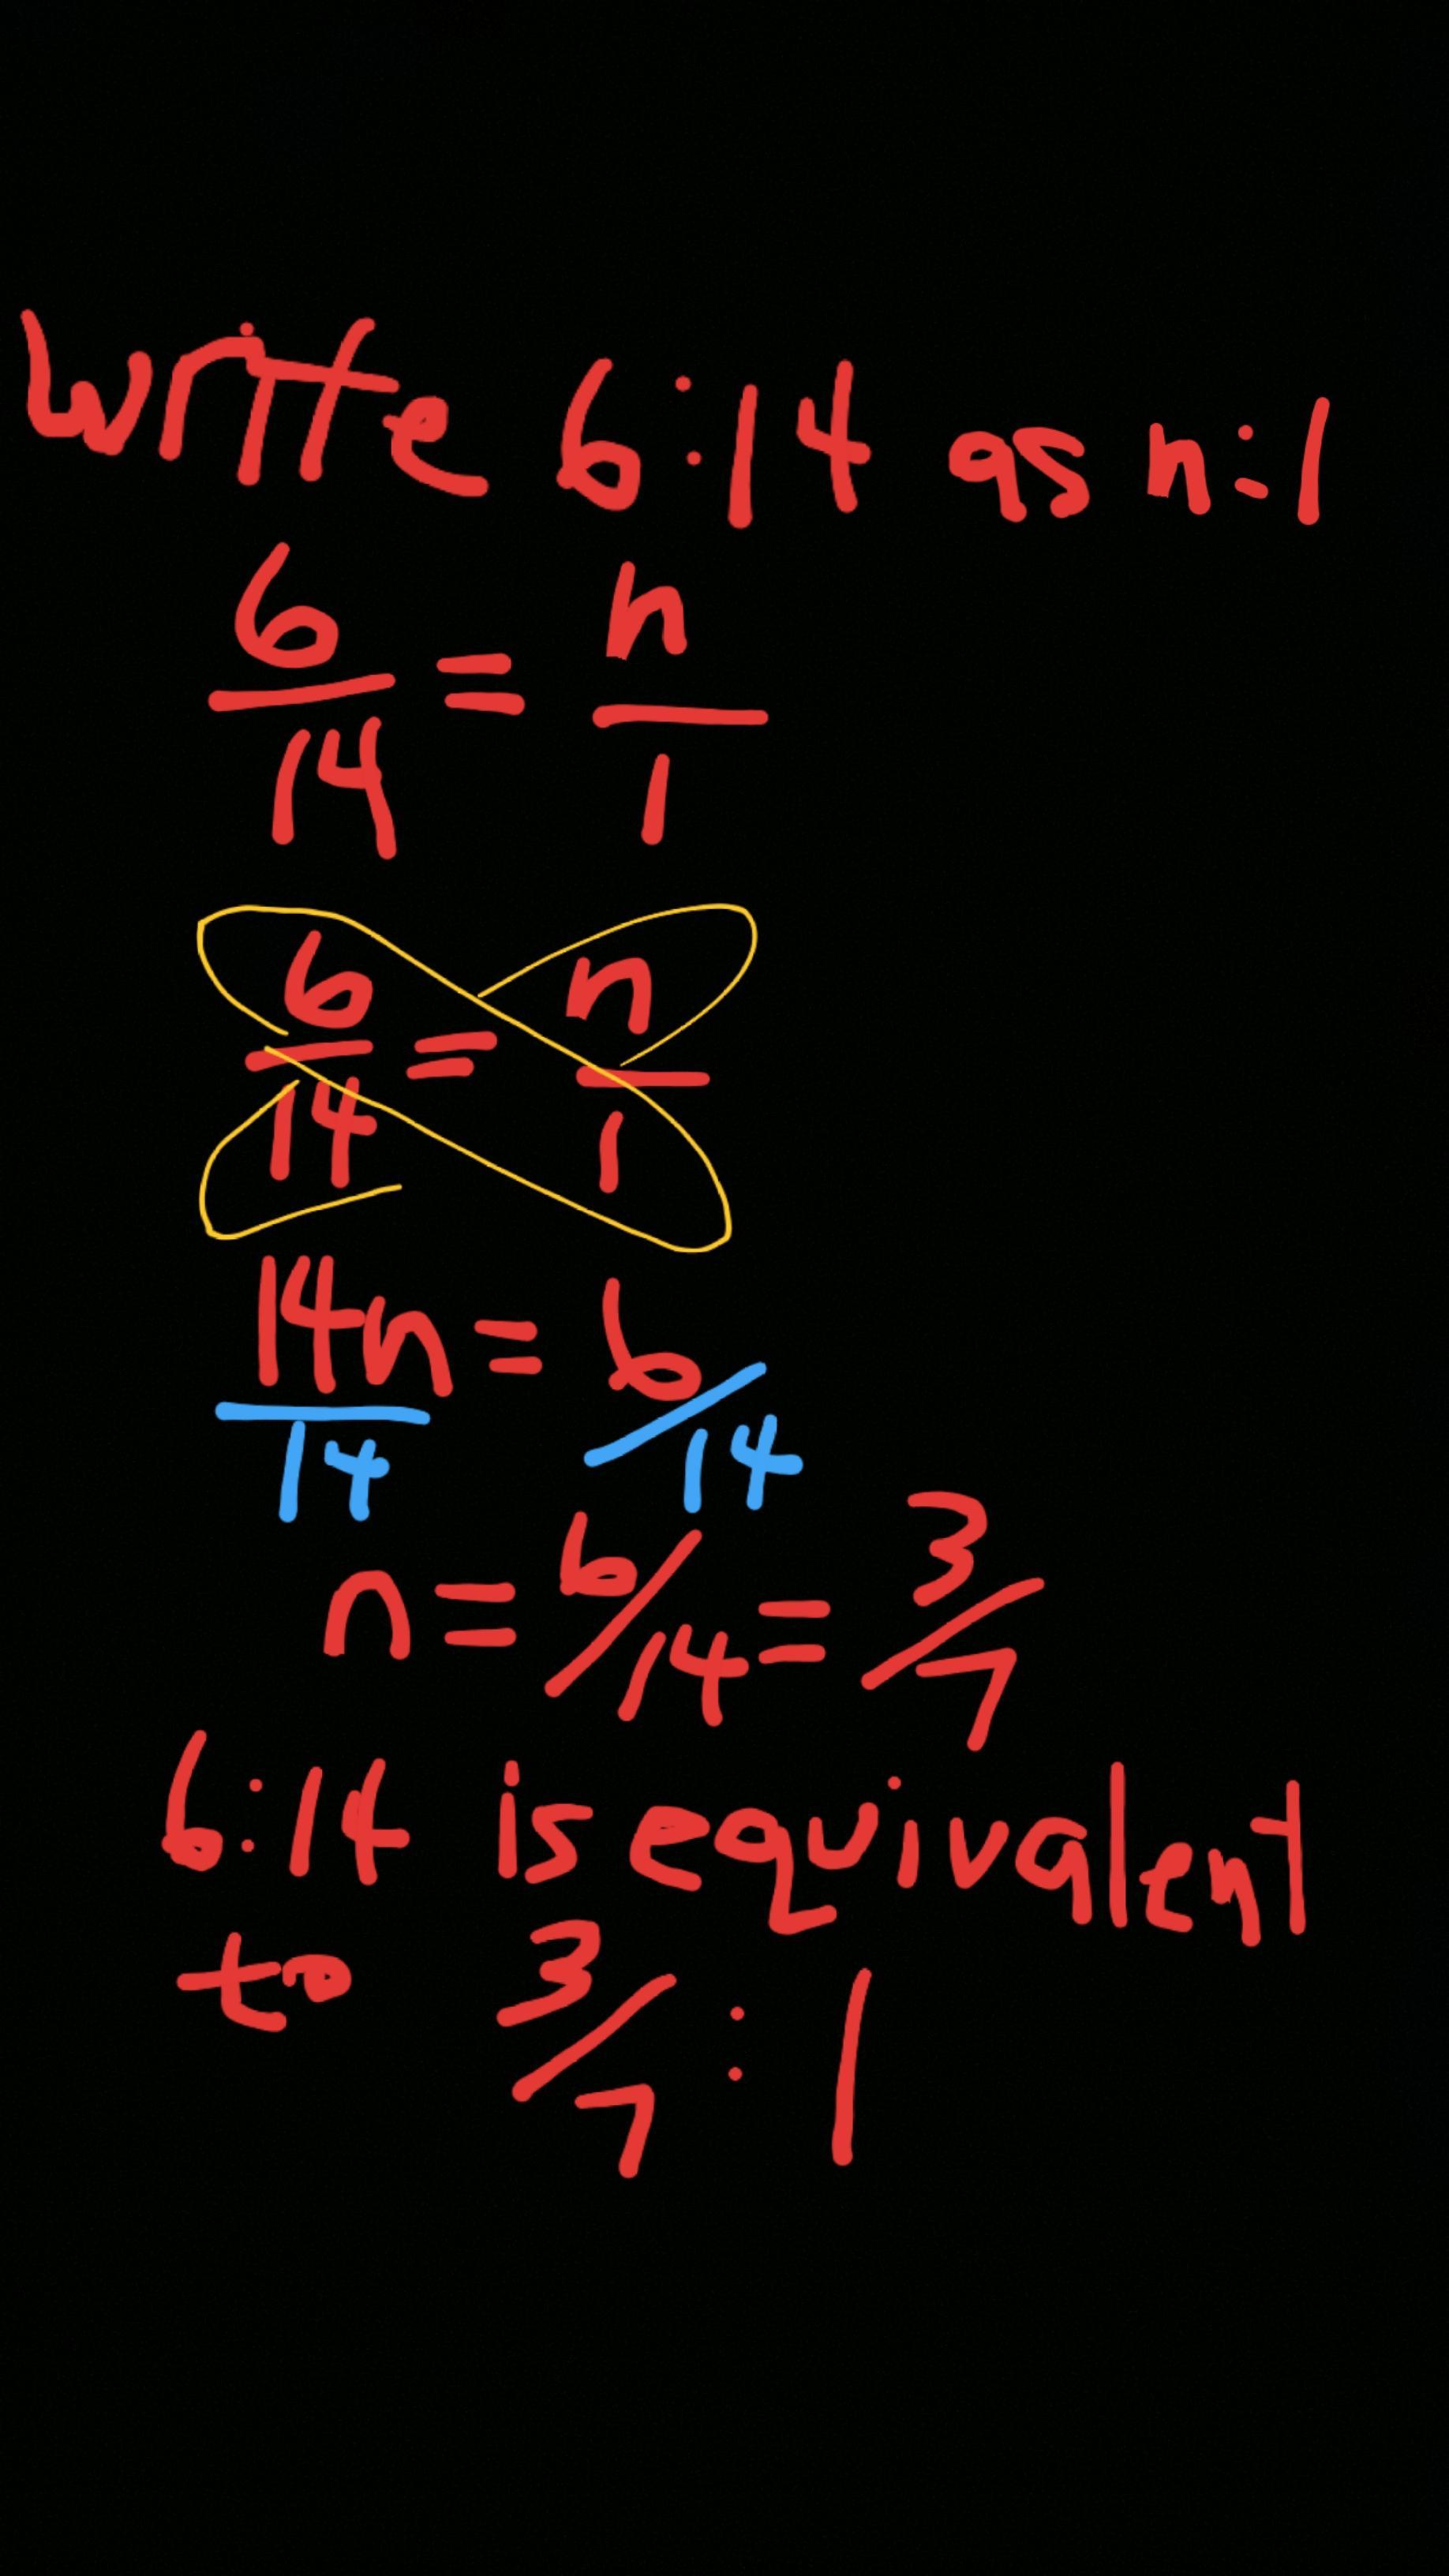 Write 6:14 as n:1
6/14 = n/1
6/14 = n/1
14n/14 = 6/14
n = 6/14 = 3/7
6:14 is equivalent
to 3/7 : 1